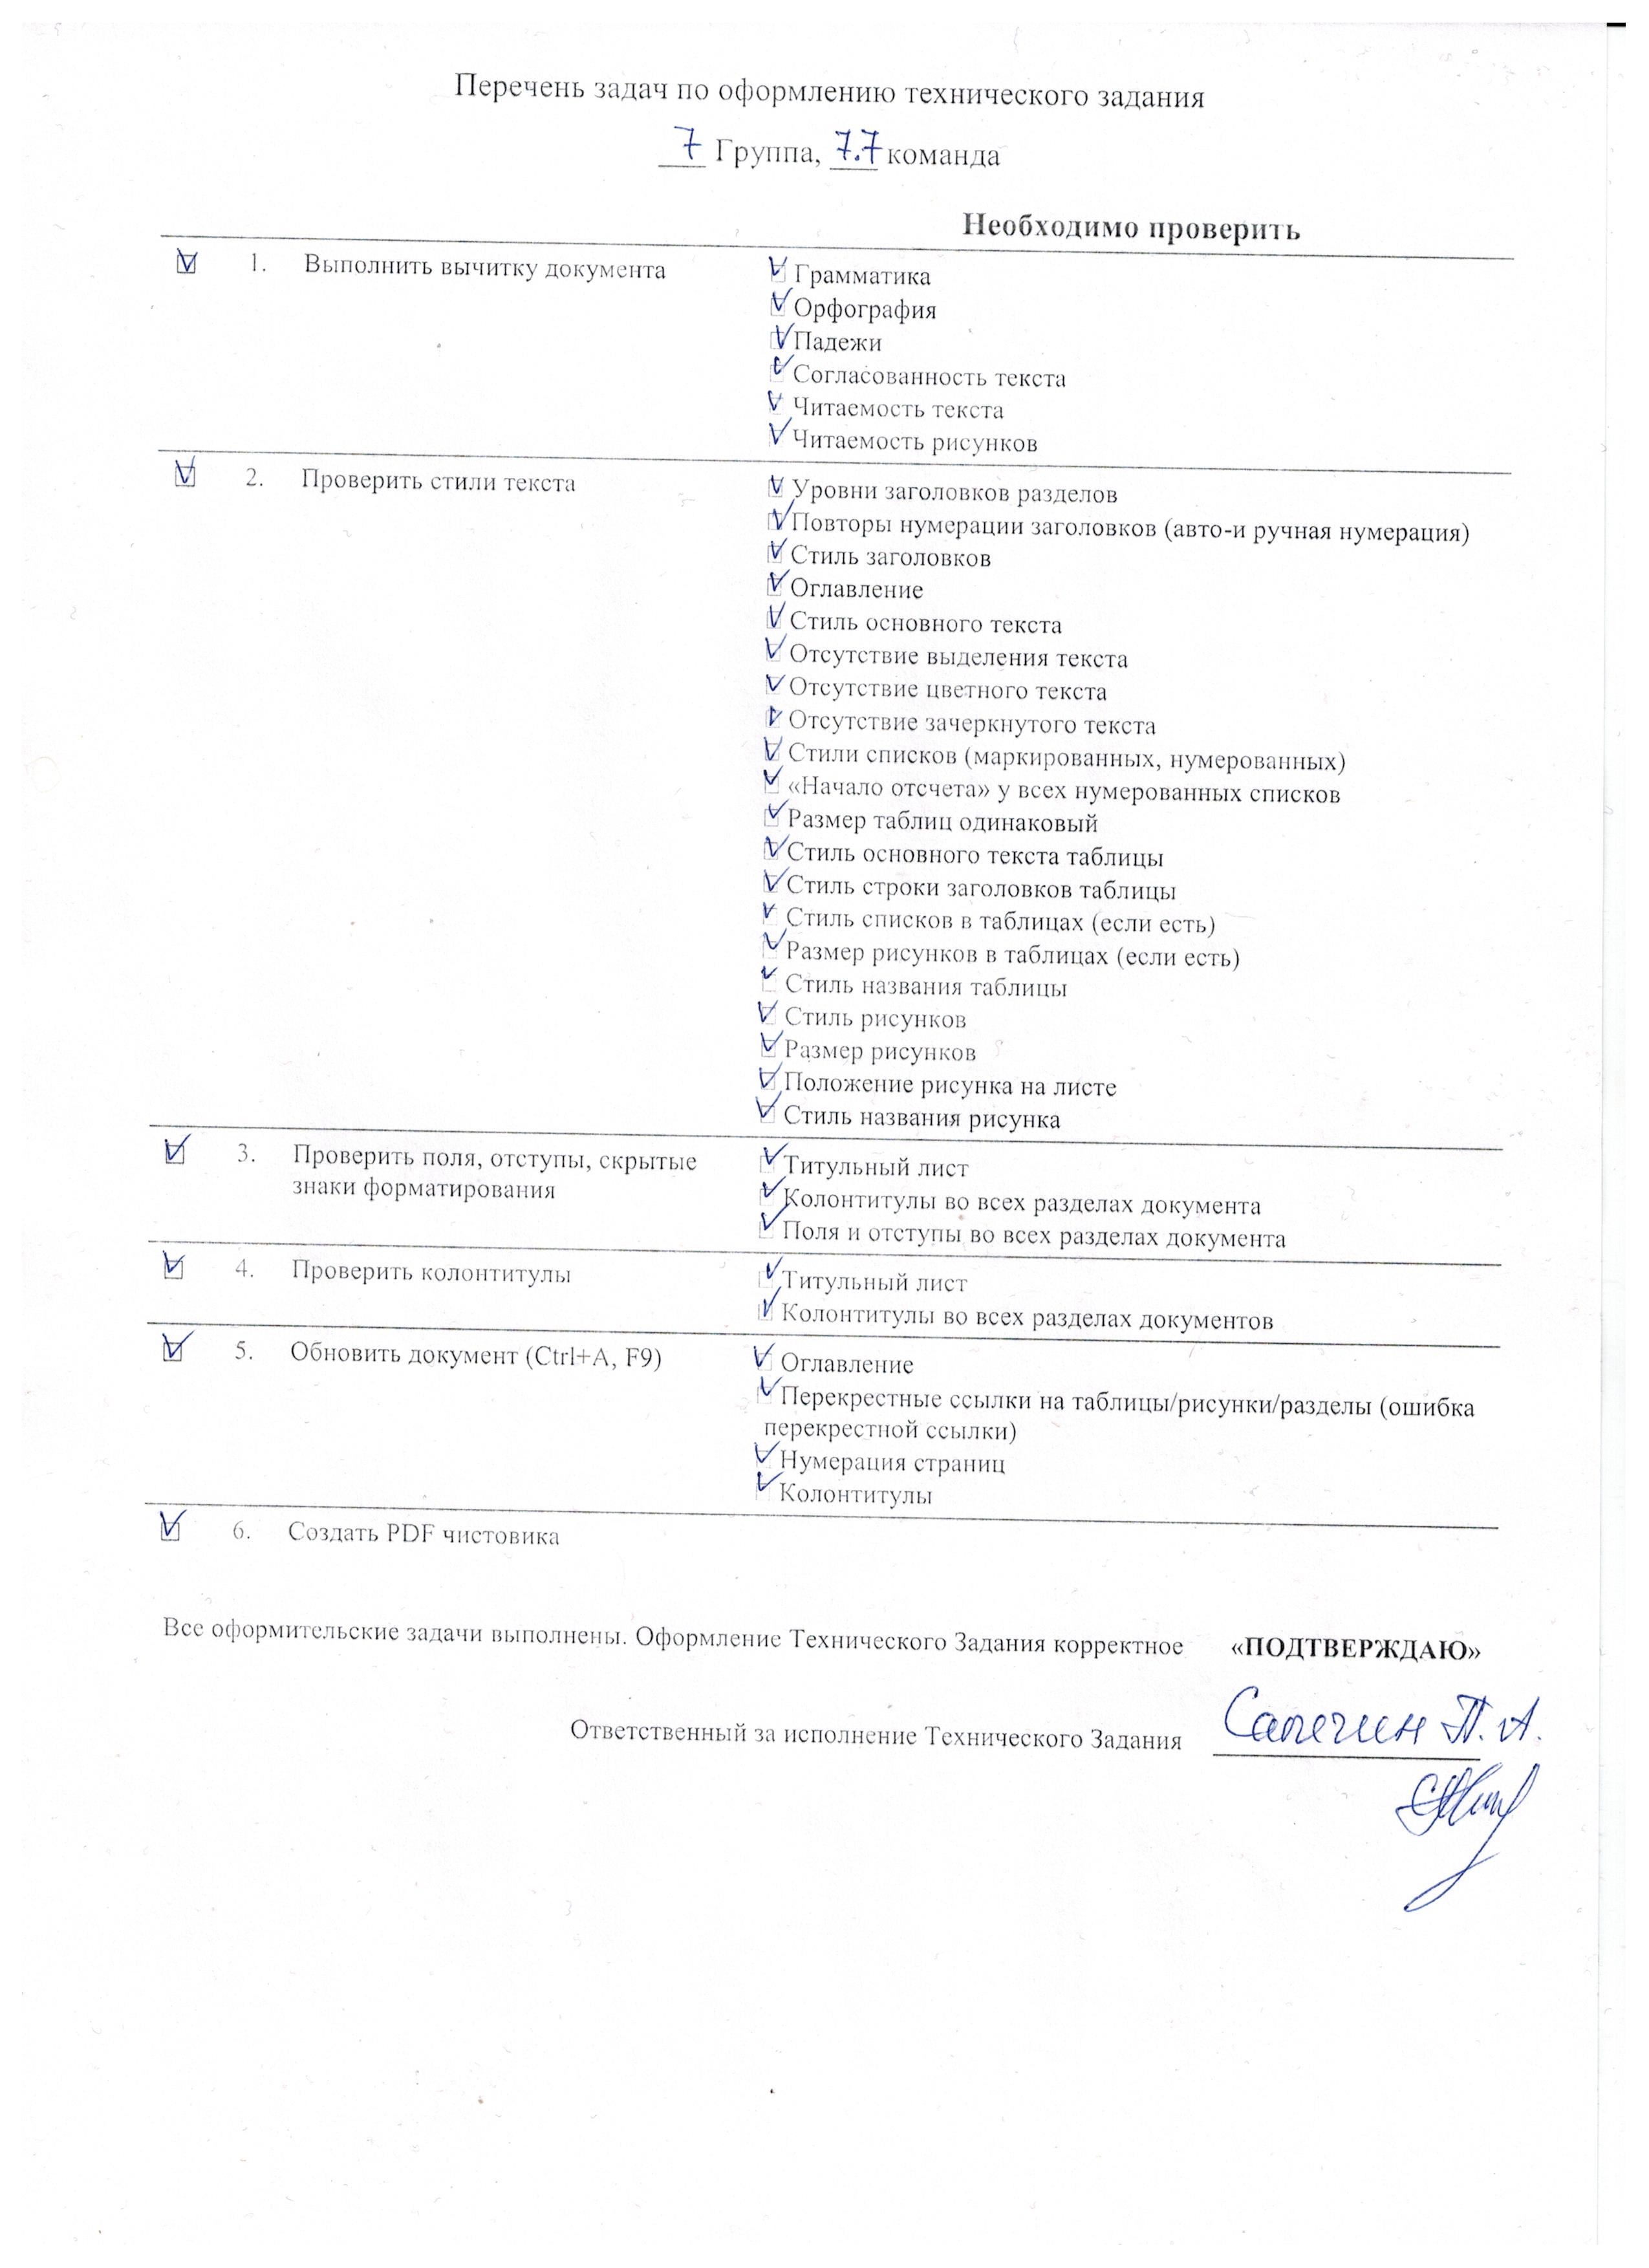 Перечень задач по оформлению технического задания
7 Группа, 7.7 команда
Необходимо проверить
1. Выполнить вычитку документа
Грамматика
Орфография
Падежи
Согласованность текста
Читаемость текста
Читаемость рисунков
2. Проверить стили текста
Уровни заголовков разделов
Повторы нумерации заголовков (авто-и ручная нумерация)
Стиль заголовков
Оглавление
Стиль основного текста
Отсутствие выделения текста
Отсутствие цветного текста
Отсутствие зачеркнутого текста
Стили списков (маркированных, нумерованных)
«Начало отсчета» у всех нумерованных списков
Размер таблиц одинаковый
Стиль основного текста таблицы
Стиль строки заголовков таблицы
Стиль списков в таблицах (если есть)
Размер рисунков в таблицах (если есть)
Стиль названия таблицы
Стиль рисунков
Размер рисунков
Положение рисунка на листе
Стиль названия рисунка
3. Проверить поля, отступы, скрытые
знаки форматирования
Титульный лист
Колонтитулы во всех разделах документа
Поля и отступы во всех разделах документа
4. Проверить колонтитулы
Титульный лист
Колонтитулы во всех разделах документов
5. Обновить документ (Ctrl+A, F9)
Оглавление
Перекрестные ссылки на таблицы/рисунки/разделы (ошибка
перекрестной ссылки)
Нумерация страниц
Колонтитулы
6. Создать PDF чистовика
Все оформительские задачи выполнены. Оформление Технического Задания корректное «ПОДТВЕРЖДАЮ»
Ответственный за исполнение Технического Задания П.А.